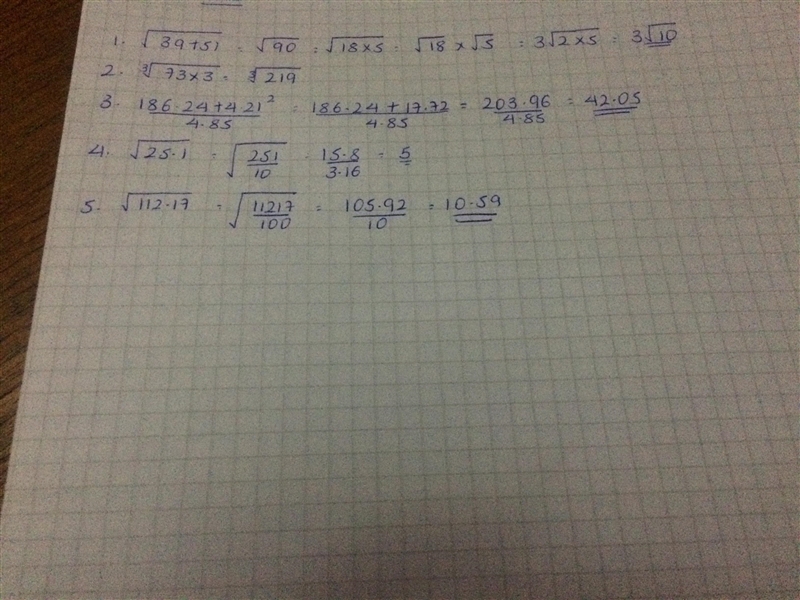 1. √39+51 = √90 = √18×5 = √18 × √5 = 3√2×5 = 3√10
2. ∛73×3 = ∛219
3. 186.24+4.21² / 4.85 = 186.24 + 17.72 / 4.85 = 203.96 / 4.85 = 42.05
4. √25.1 = √251/10 = 15.8/3.16 = 5
5. √112.17 = √11217/100 = 105.92/10 = 10.59